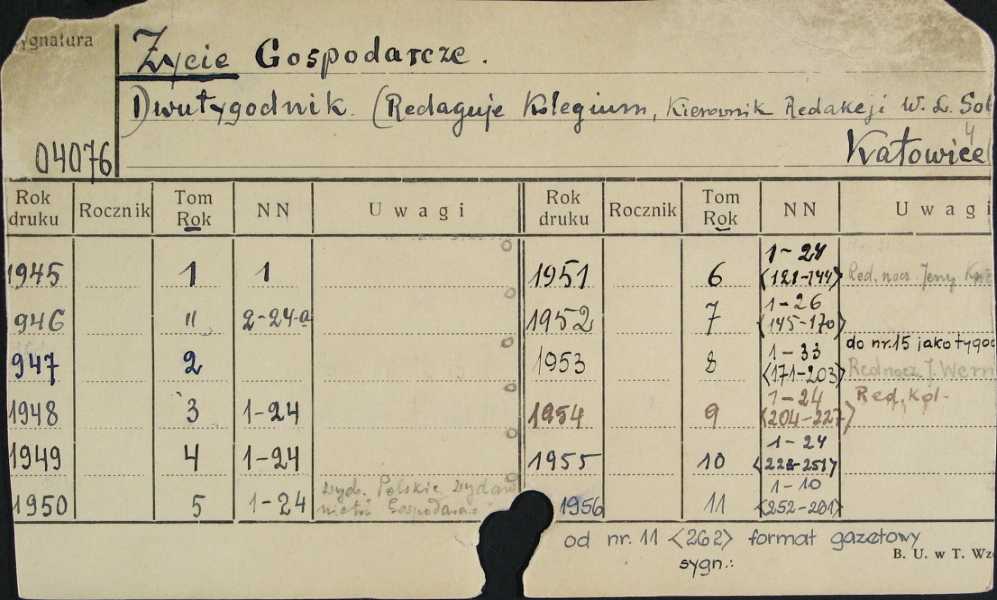 ygnatura
Życie Gospodarcze.
Dwutygodnik. (Redaguje Kolegium, Kierownik Redakcji W. L. Sol
04076 Katowice
Rok druku Rocznik Tom Rok NN Uwagi Rok druku Rocznik Tom Rok NN Uwagi
1945 1 1 1951 6 1-24 <121-144> Red. nacz. Jerzy
946 " 2-24-a 1952 7 1-26 <145-170>
do nr. 15 jako tygod
947 2 1953 8 1-33 <171-203> Red nacz J. Wern
1948 3 1-24 1954 9 1-24 <204-227> Red. Kol.
1949 4 1-24 1955 10 1-24 <228-251>
1950 5 1-24 wyd. Polskie wydaw nictw. Gospodarcz 1956 11 1-10 <252-261>
od nr. 11 <262> format gazetowy
sygn.:
B. U. w T. Wzó